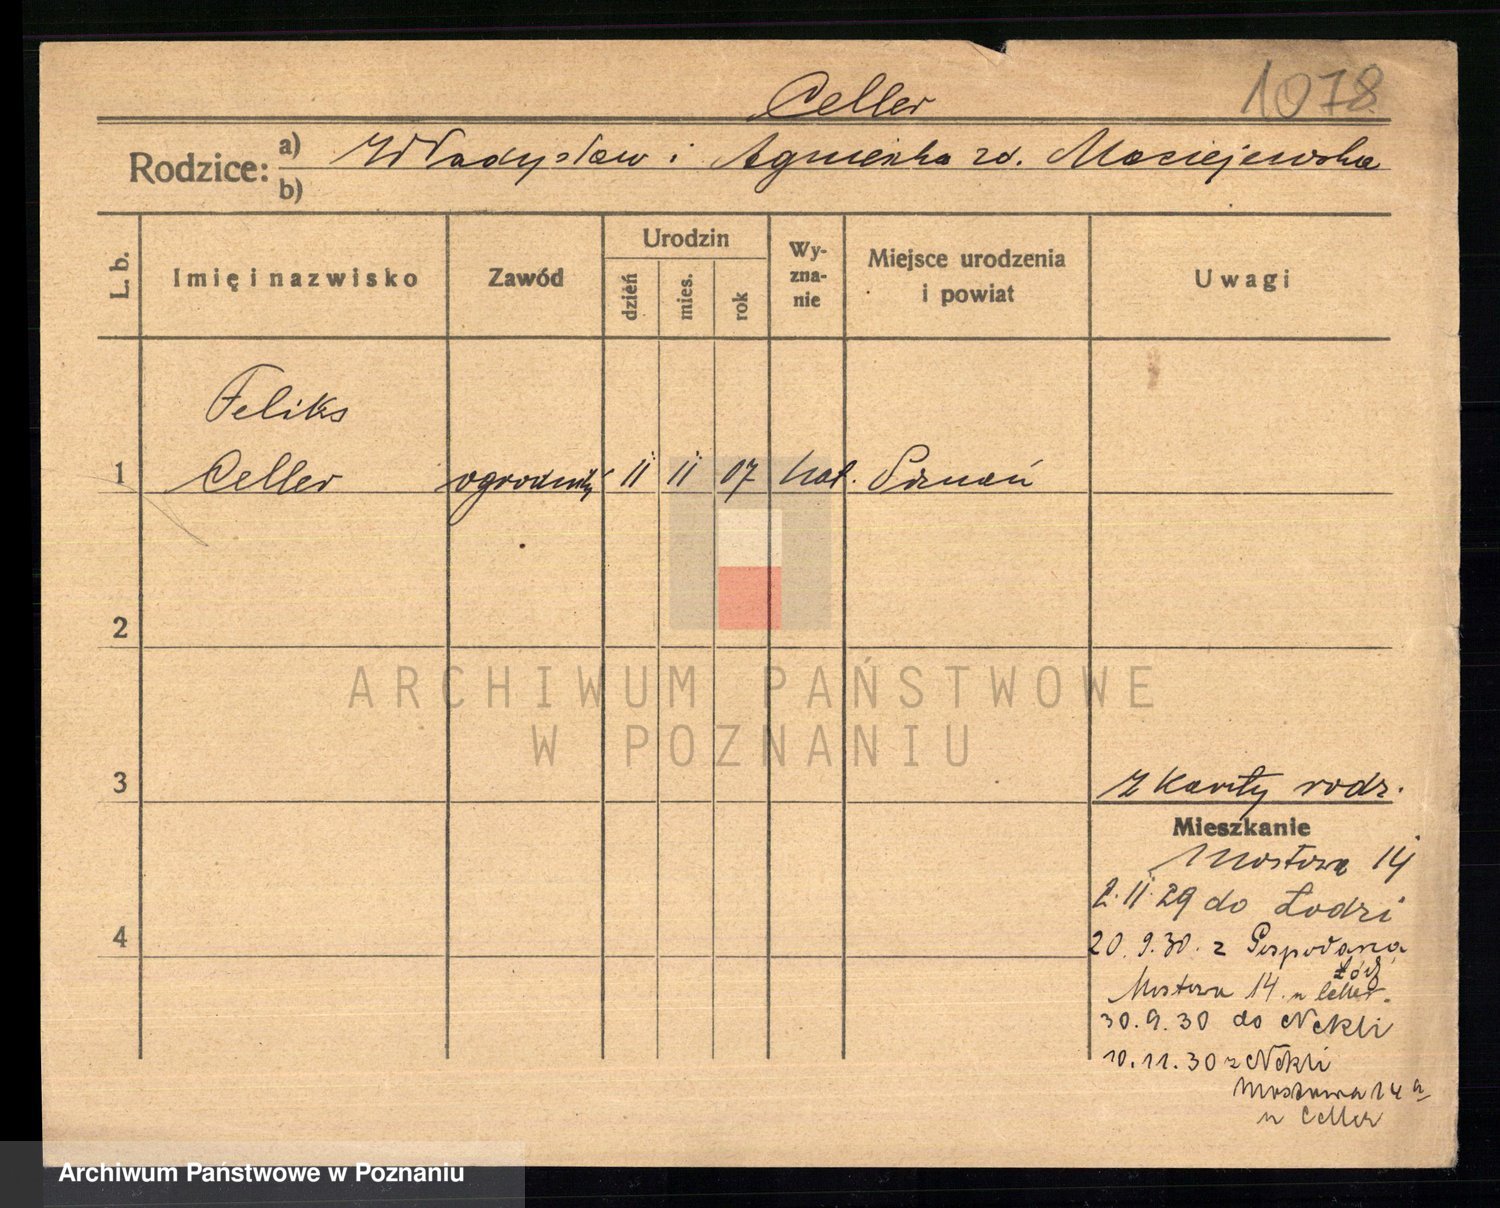 Celler
1078
Rodzice: a) Władysław i Agnieszka zd. Maciejewska
b)
L. b.
Imię i nazwisko
Zawód
Urodzin
dzień
mies.
rok
Wy-
zna-
nie
Miejsce urodzenia
i powiat
Uwagi
Feliks
1 Celler ogrodnik 11 II 07 kat. Poznań
2
3
z karty rodz.
Mieszkanie
Mostowa 14
2.II.29 do Łodzi
4
20.9.30. z
Łódź
Mostowa 14. u Celler.
30.9.30 do Nekli
10.11.30 z Nekli
Mostowa 14a
u Celler
ARCHIWUM PAŃSTWOWE
W POZNANIU
Archiwum Państwowe w Poznaniu